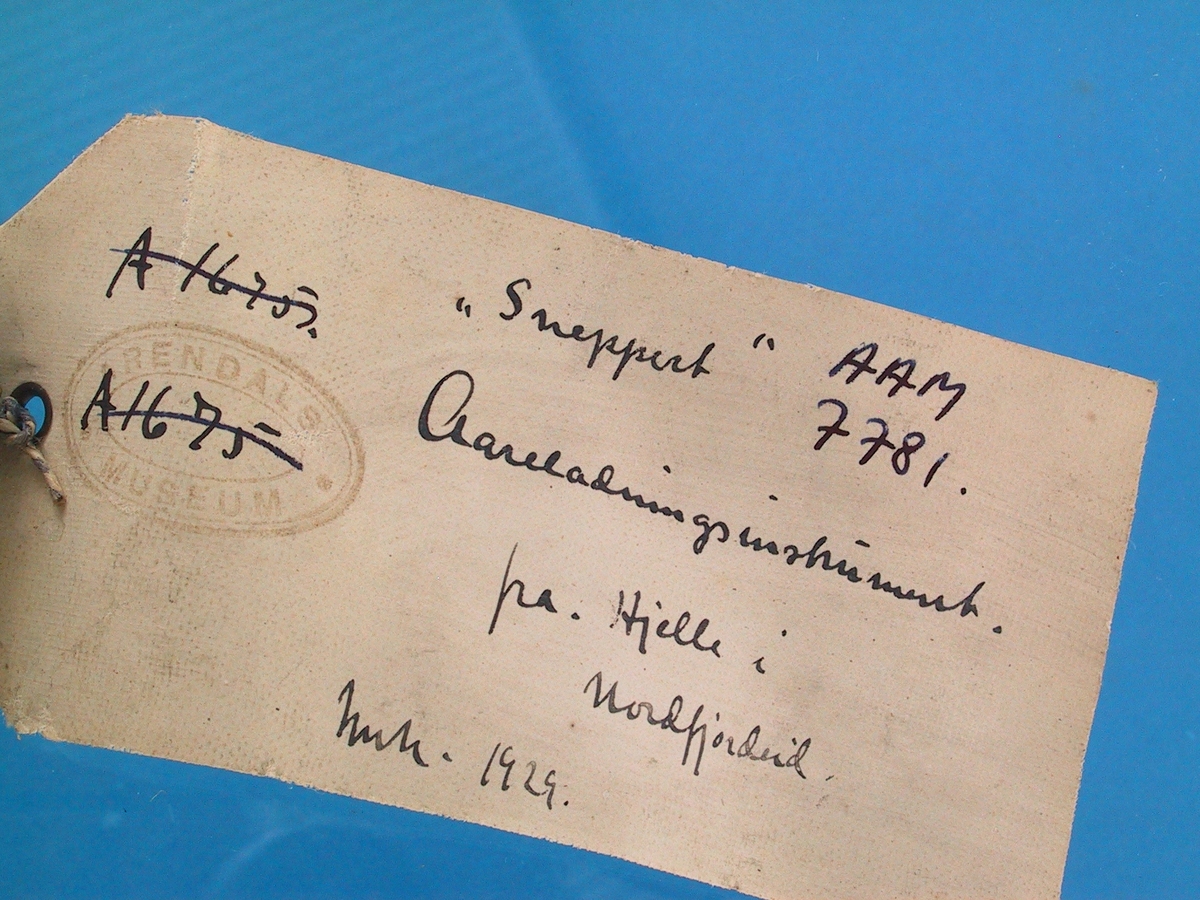 A 1675.
ARENDALS
MUSEUM
A1675
„Sneppert“
AAM
7781.
Aareladningsinstrument.
fra. Hjelle i
Nordfjordeid.
1929.